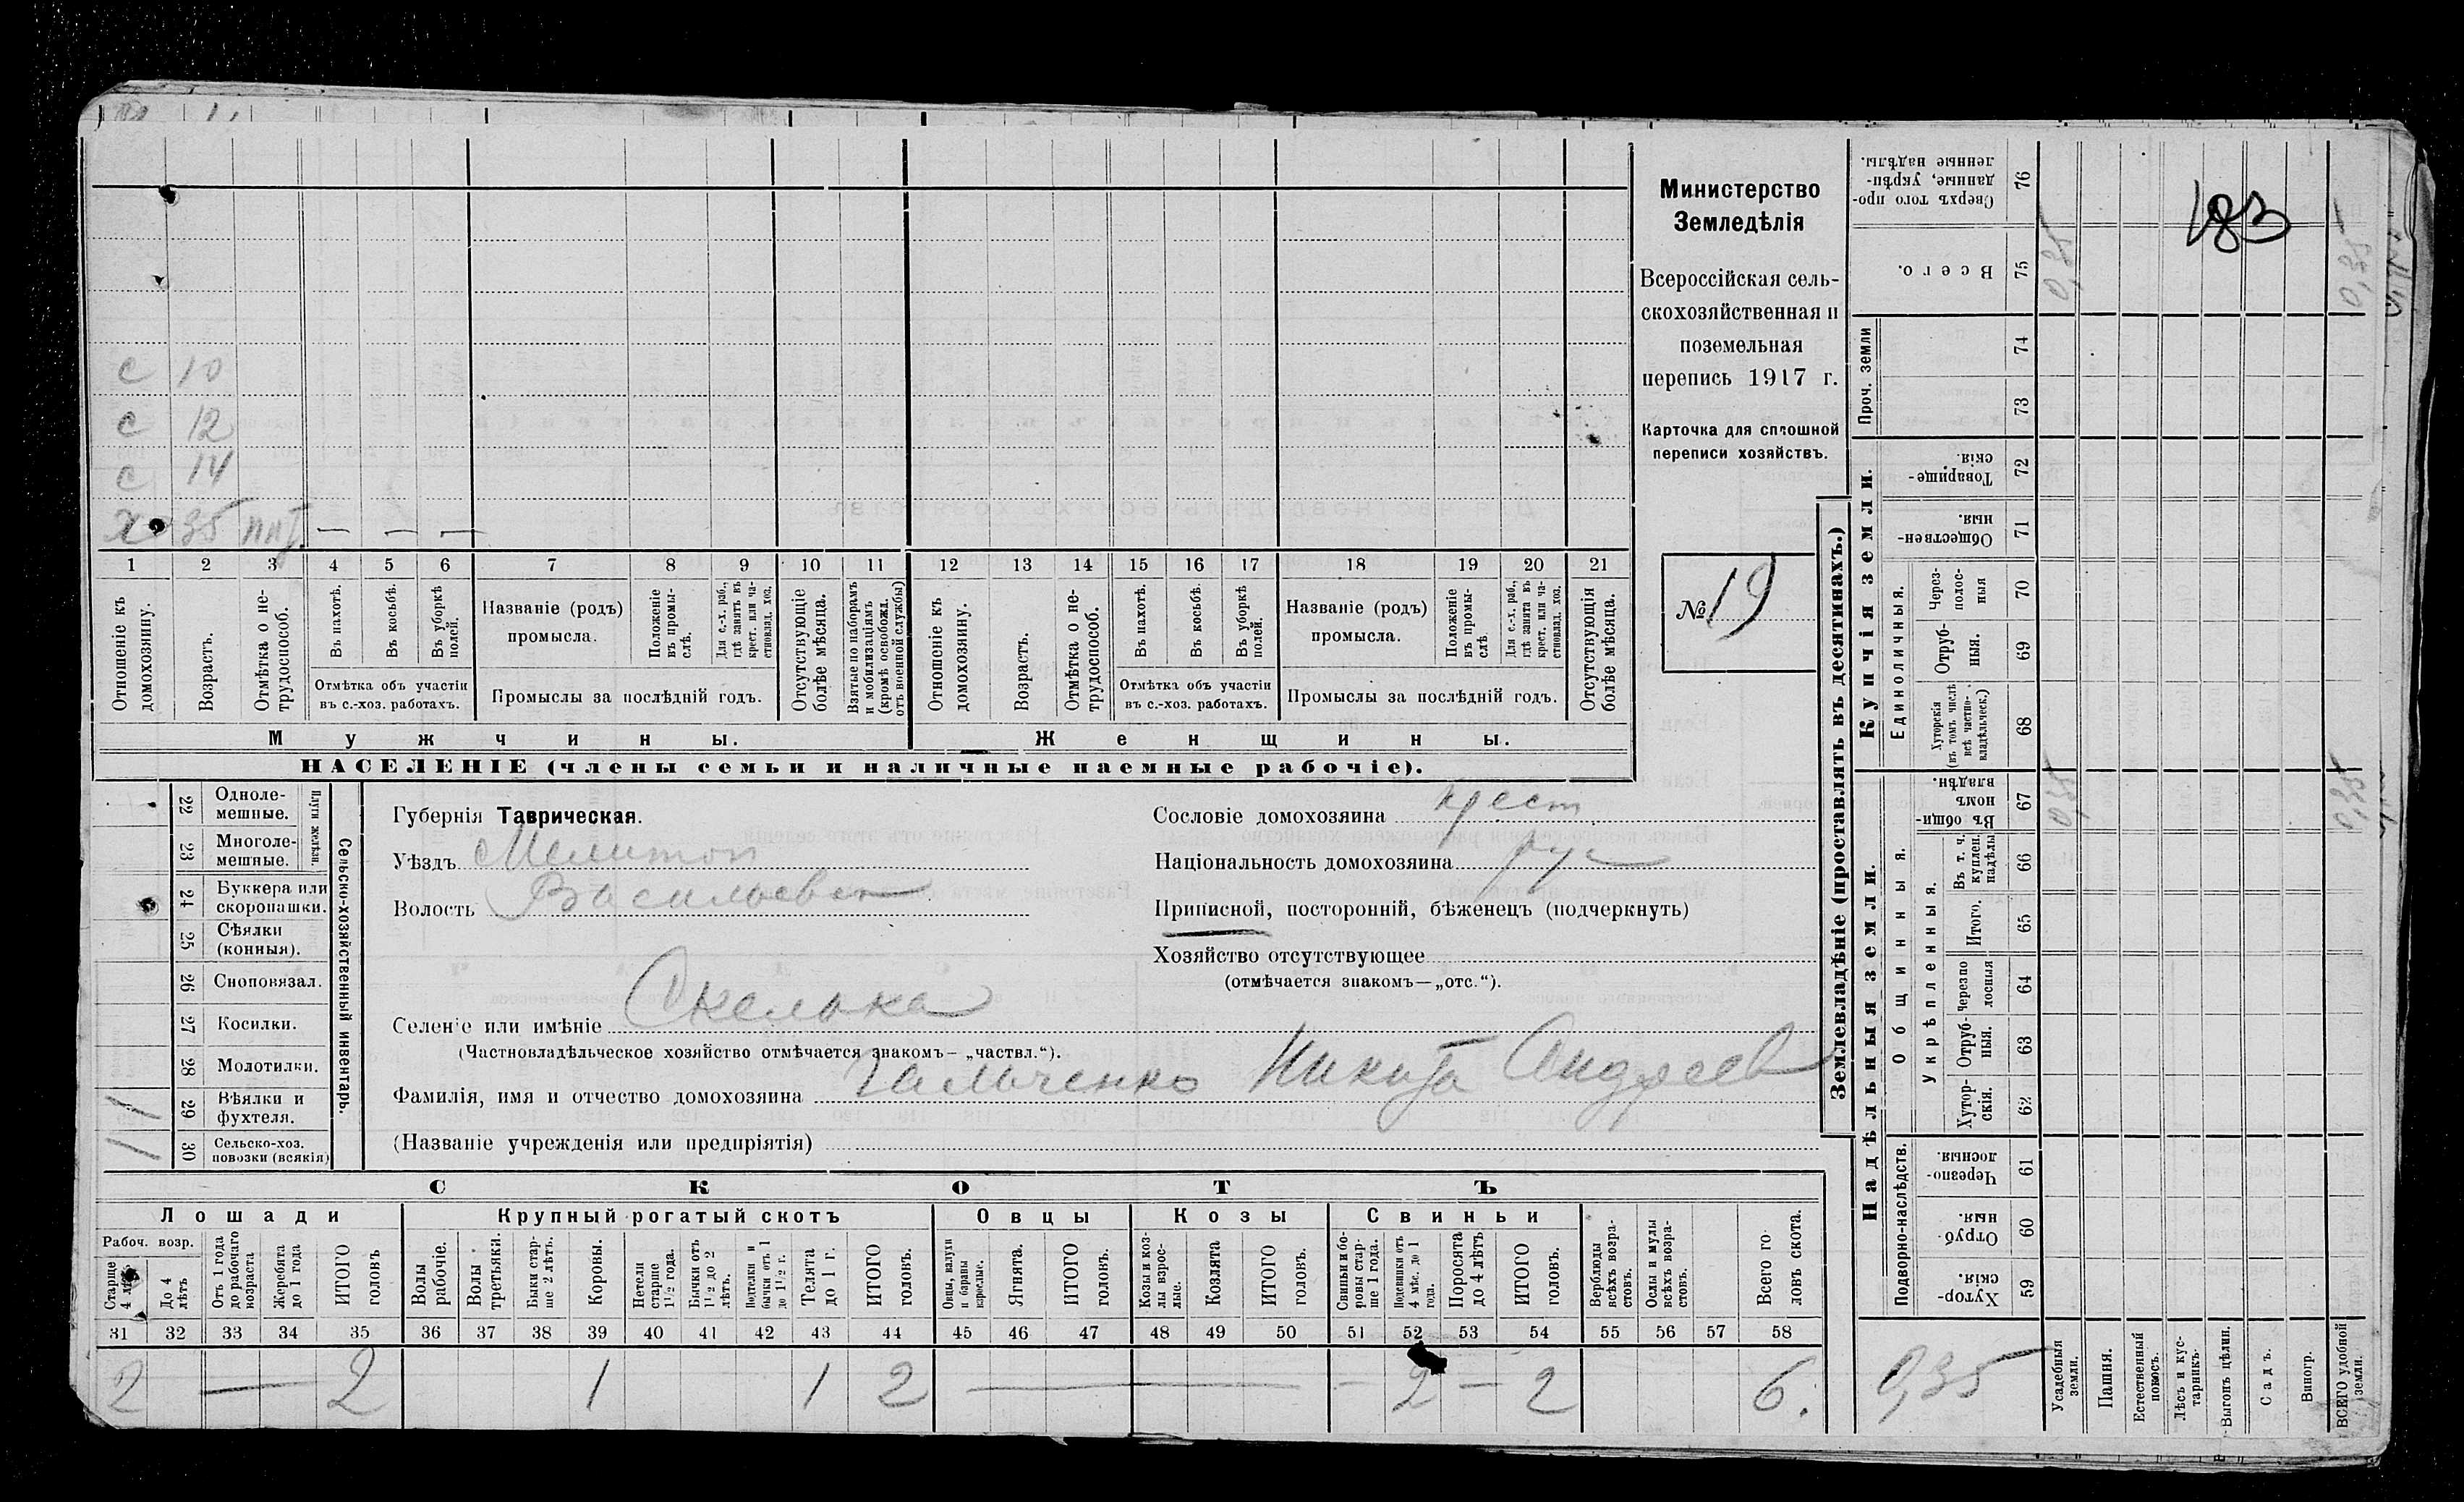 183
Министерство
Земледѣлія
Всероссійская сель-
скохозяйственная и
поземельная
перепись 1917 г.
Карточка для сплошной
переписи хозяйствъ.
№ 19
с 10
с 12
с 14
х 35 — — —
1 2 3 4 5 6 7 8 9 10 11 12 13 14 15 16 17 18 19 20 21
Отношеніе къ домохозяину.
Возрастъ.
Отмѣтка о не-трудоспособ.
Въ пахотѣ.
Въ косьбѣ.
Въ уборкѣ полей.
Отмѣтка объ участіи
въ с.-хоз. работахъ.
Названіе (родъ)
промысла.
Положеніе въ промы-слѣ.
Для с.-х. раб., гдѣ занятъ въ крест. или ча-стновлад. хоз.
Промыслы за послѣдній годъ.
Отсутствующіе болѣе мѣсяца.
Взятые по наборамъ и мобилизаціямъ (кромѣ освобожд. отъ военной службы)
Отношеніе къ домохозяину.
Возрастъ.
Отмѣтка о не-трудоспособ.
Въ пахотѣ.
Въ косьбѣ.
Въ уборкѣ полей.
Отмѣтка объ участіи
въ с.-хоз. работахъ.
Названіе (родъ)
промысла.
Положеніе въ промы-слѣ
Для с.-х. раб., гдѣ занята въ крест. или ча-стновлад. хоз.
Промыслы за послѣдній годъ.
Отсутствующія болѣе мѣсяца.
Мужчины.
Женщины.
НАСЕЛЕНІЕ (члены семьи и наличные наемные рабочіе).
Сельско-хозяйственный инвентарь.
Плуги желѣзн.
22 Одноле-мешные.
23 Многоле-мешные.
24 Буккера или скоропашки.
25 Сѣялки (конныя).
26 Сноповязал.
27 Косилки.
28 Молотилки.
29 Вѣялки и фухтеля.
30 Сельско-хоз. повозки (всякія)
Губернія Таврическая.
Уѣздъ Мелитоп
Волость Васильевск
Селеніе или имѣніе Скелька
(Частновладѣльческое хозяйство отмѣчается знакомъ—„частвл.“).
Фамилія, имя и отчество домохозяина Гальченко Никита Андреев
(Названіе учрежденія или предпріятія)
Сословіе домохозяина крест
Національность домохозяина рус
Приписной, посторонній, бѣженецъ (подчеркнуть)
Хозяйство отсутствующее
(отмѣчается знакомъ—„отс.“).
СКОТЪ
Лошади
Рабоч. возр.
Старше 4 лѣтъ
До 4 лѣтъ
Отъ 1 года до рабочаго возраста
Жеребята до 1 года
ИТОГО головъ
Крупный рогатый скотъ
Волы рабочіе.
Волы третьяки.
Быки стар-ше 2 лѣтъ.
Коровы.
Нетели старше 1½ года.
Бычки отъ 1½ до 2 лѣтъ.
Подтелки и бычки отъ 1 до 1½ г.
Телята до 1 г.
ИТОГО головъ.
Овцы
Овцы, валухи и бараны взрослые.
Ягнята.
ИТОГО головъ.
Козы
Козы и коз-лы взрос-лые.
Козлята
ИТОГО головъ.
Свиньи
Свиньи и бо-ровы стар-ше 1 года.
Подсвинки отъ 4 мѣс. до 1 года.
Поросята до 4 лѣтъ
ИТОГО головъ.
Верблюды всѣхъ возра-стовъ.
Ослы и мулы всѣхъ возра-стовъ.
Всего го-ловъ скота.
31 32 33 34 35 36 37 38 39 40 41 42 43 44 45 46 47 48 49 50 51 52 53 54 55 56 57 58
2 — 2 1 1 2 — — 2 — 2 6.
Землевладѣніе (проставлять въ десятинахъ.)
Купчія земли.
Надѣльныя земли.
Сверхъ того про-данные, укрѣп-ленные надѣлы. 76
Всего. 75 0,35 0,35
Проч. земли 74
73
Товарище-скія. 72
Обществен-ныя. 71
Единоличныя.
Через-полос-ныя 70
Отруб-ныя. 69
Хуторскія (въ томъ числѣ всѣ частно-владѣльческ.) 68
Общинныя.
Въ общи-номъ владѣн. 67 0,35 0,35
Укрѣпленныя.
Въ т. ч. куплен. надѣлы 66
Итого. 65
Черезпо лосныя 64
Отруб-ныя. 63
Хутор-скія. 62
Подворно-наслѣдств.
Черезпо-лосныя. 61
Отруб-ныя. 60
Хутор-скія. 59
0,35
Усадебныя земли.
Пашня.
Естественный покосъ.
Лѣсъ и кус-тарникъ.
Выгонъ цѣлин.
Садъ.
Виногр.
ВСЕГО удобной земли.